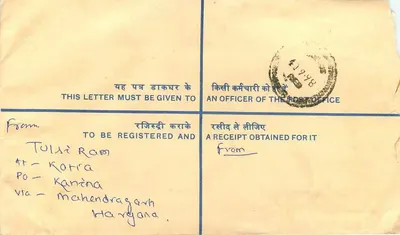 यह पत्र डाकघर के किसी कर्मचारी को दें
THIS LETTER MUST BE GIVEN TO AN OFFICER OF THE POST OFFICE
रजिस्ट्री कराके रसीद ले लीजिए
TO BE REGISTERED AND A RECEIPT OBTAINED FOR IT
From
From
Tulsi Ram
At - Kotia
PO - Kanina
Via - Mahendragarh
Haryana.